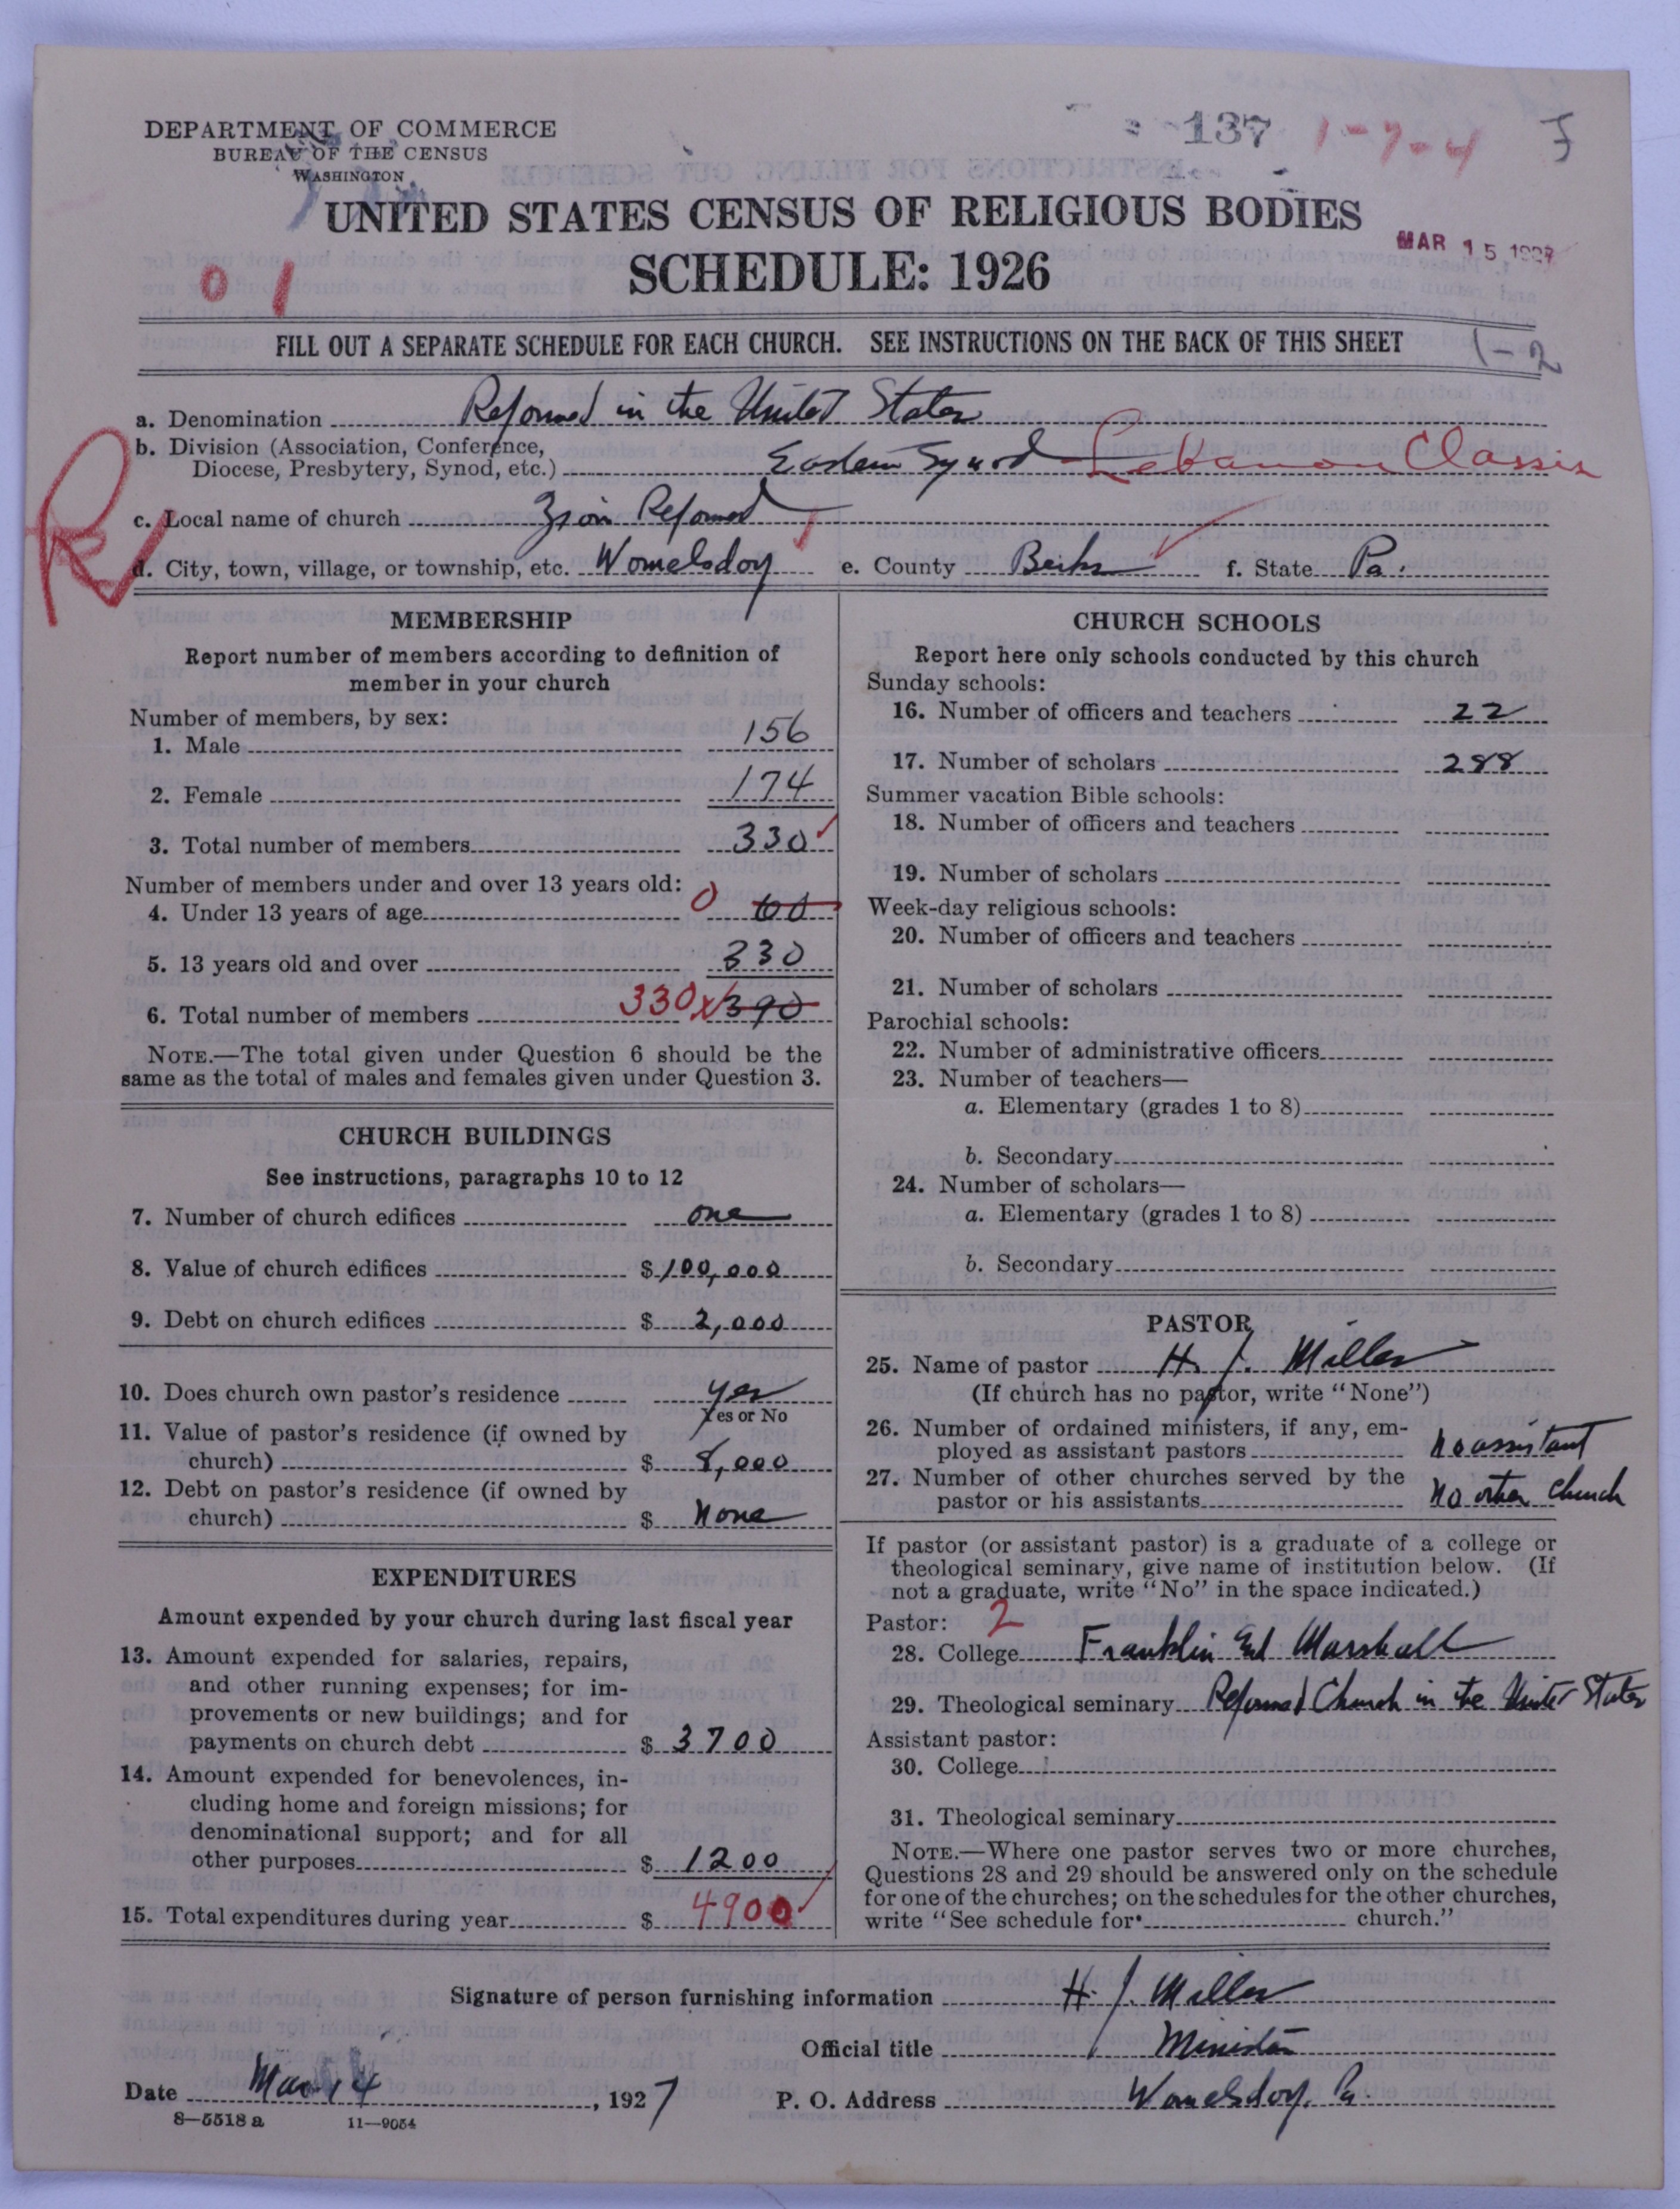 DEPARTMENT OF COMMERCE
BUREAU OF THE CENSUS
WASHINGTON
137 1-7-4
UNITED STATES CENSUS OF RELIGIOUS BODIES
MAR 15 1927
SCHEDULE: 1926
0 1
FILL OUT A SEPARATE SCHEDULE FOR EACH CHURCH. SEE INSTRUCTIONS ON THE BACK OF THIS SHEET
1-2
a. Denomination Reformed in the United States
b. Division (Association, Conference,
Diocese, Presbytery, Synod, etc.) Eastern Synod - Lebanon Classis
c. Local name of church Zion Reformed
d. City, town, village, or township, etc. Womelsdorf e. County Berks f. State Pa.
MEMBERSHIP
Report number of members according to definition of
member in your church
Number of members, by sex:
1. Male 156
2. Female 174
3. Total number of members 330
Number of members under and over 13 years old:
4. Under 13 years of age 0 60
5. 13 years old and over 330
6. Total number of members 330 x 390
NOTE.—The total given under Question 6 should be the
same as the total of males and females given under Question 3.
CHURCH BUILDINGS
See instructions, paragraphs 10 to 12
7. Number of church edifices one
8. Value of church edifices $ 100,000
9. Debt on church edifices $ 2,000
10. Does church own pastor's residence yes
Yes or No
11. Value of pastor's residence (if owned by
church) $ 8,000
12. Debt on pastor's residence (if owned by
church) $ None
EXPENDITURES
Amount expended by your church during last fiscal year
13. Amount expended for salaries, repairs,
and other running expenses; for im-
provements or new buildings; and for
payments on church debt $ 3700
14. Amount expended for benevolences, in-
cluding home and foreign missions; for
denominational support; and for all
other purposes $ 1200
15. Total expenditures during year $ 4900
CHURCH SCHOOLS
Report here only schools conducted by this church
Sunday schools:
16. Number of officers and teachers 22
17. Number of scholars 288
Summer vacation Bible schools:
18. Number of officers and teachers
19. Number of scholars
Week-day religious schools:
20. Number of officers and teachers
21. Number of scholars
Parochial schools:
22. Number of administrative officers
23. Number of teachers—
a. Elementary (grades 1 to 8)
b. Secondary
24. Number of scholars—
a. Elementary (grades 1 to 8)
b. Secondary
PASTOR
25. Name of pastor H. J. Miller
(If church has no pastor, write "None")
26. Number of ordained ministers, if any, em-
ployed as assistant pastors no assistant
27. Number of other churches served by the
pastor or his assistants no other church
If pastor (or assistant pastor) is a graduate of a college or
theological seminary, give name of institution below. (If
not a graduate, write "No" in the space indicated.)
Pastor: 2
28. College Franklin and Marshall
29. Theological seminary Reformed Church in the United States
Assistant pastor:
30. College
31. Theological seminary
NOTE.—Where one pastor serves two or more churches,
Questions 28 and 29 should be answered only on the schedule
for one of the churches; on the schedules for the other churches,
write "See schedule for church."
Signature of person furnishing information H. J. Miller
Official title Minister
Date Mar 14, 1927 P. O. Address Womelsdorf, Pa
8—5518 a 11—9054